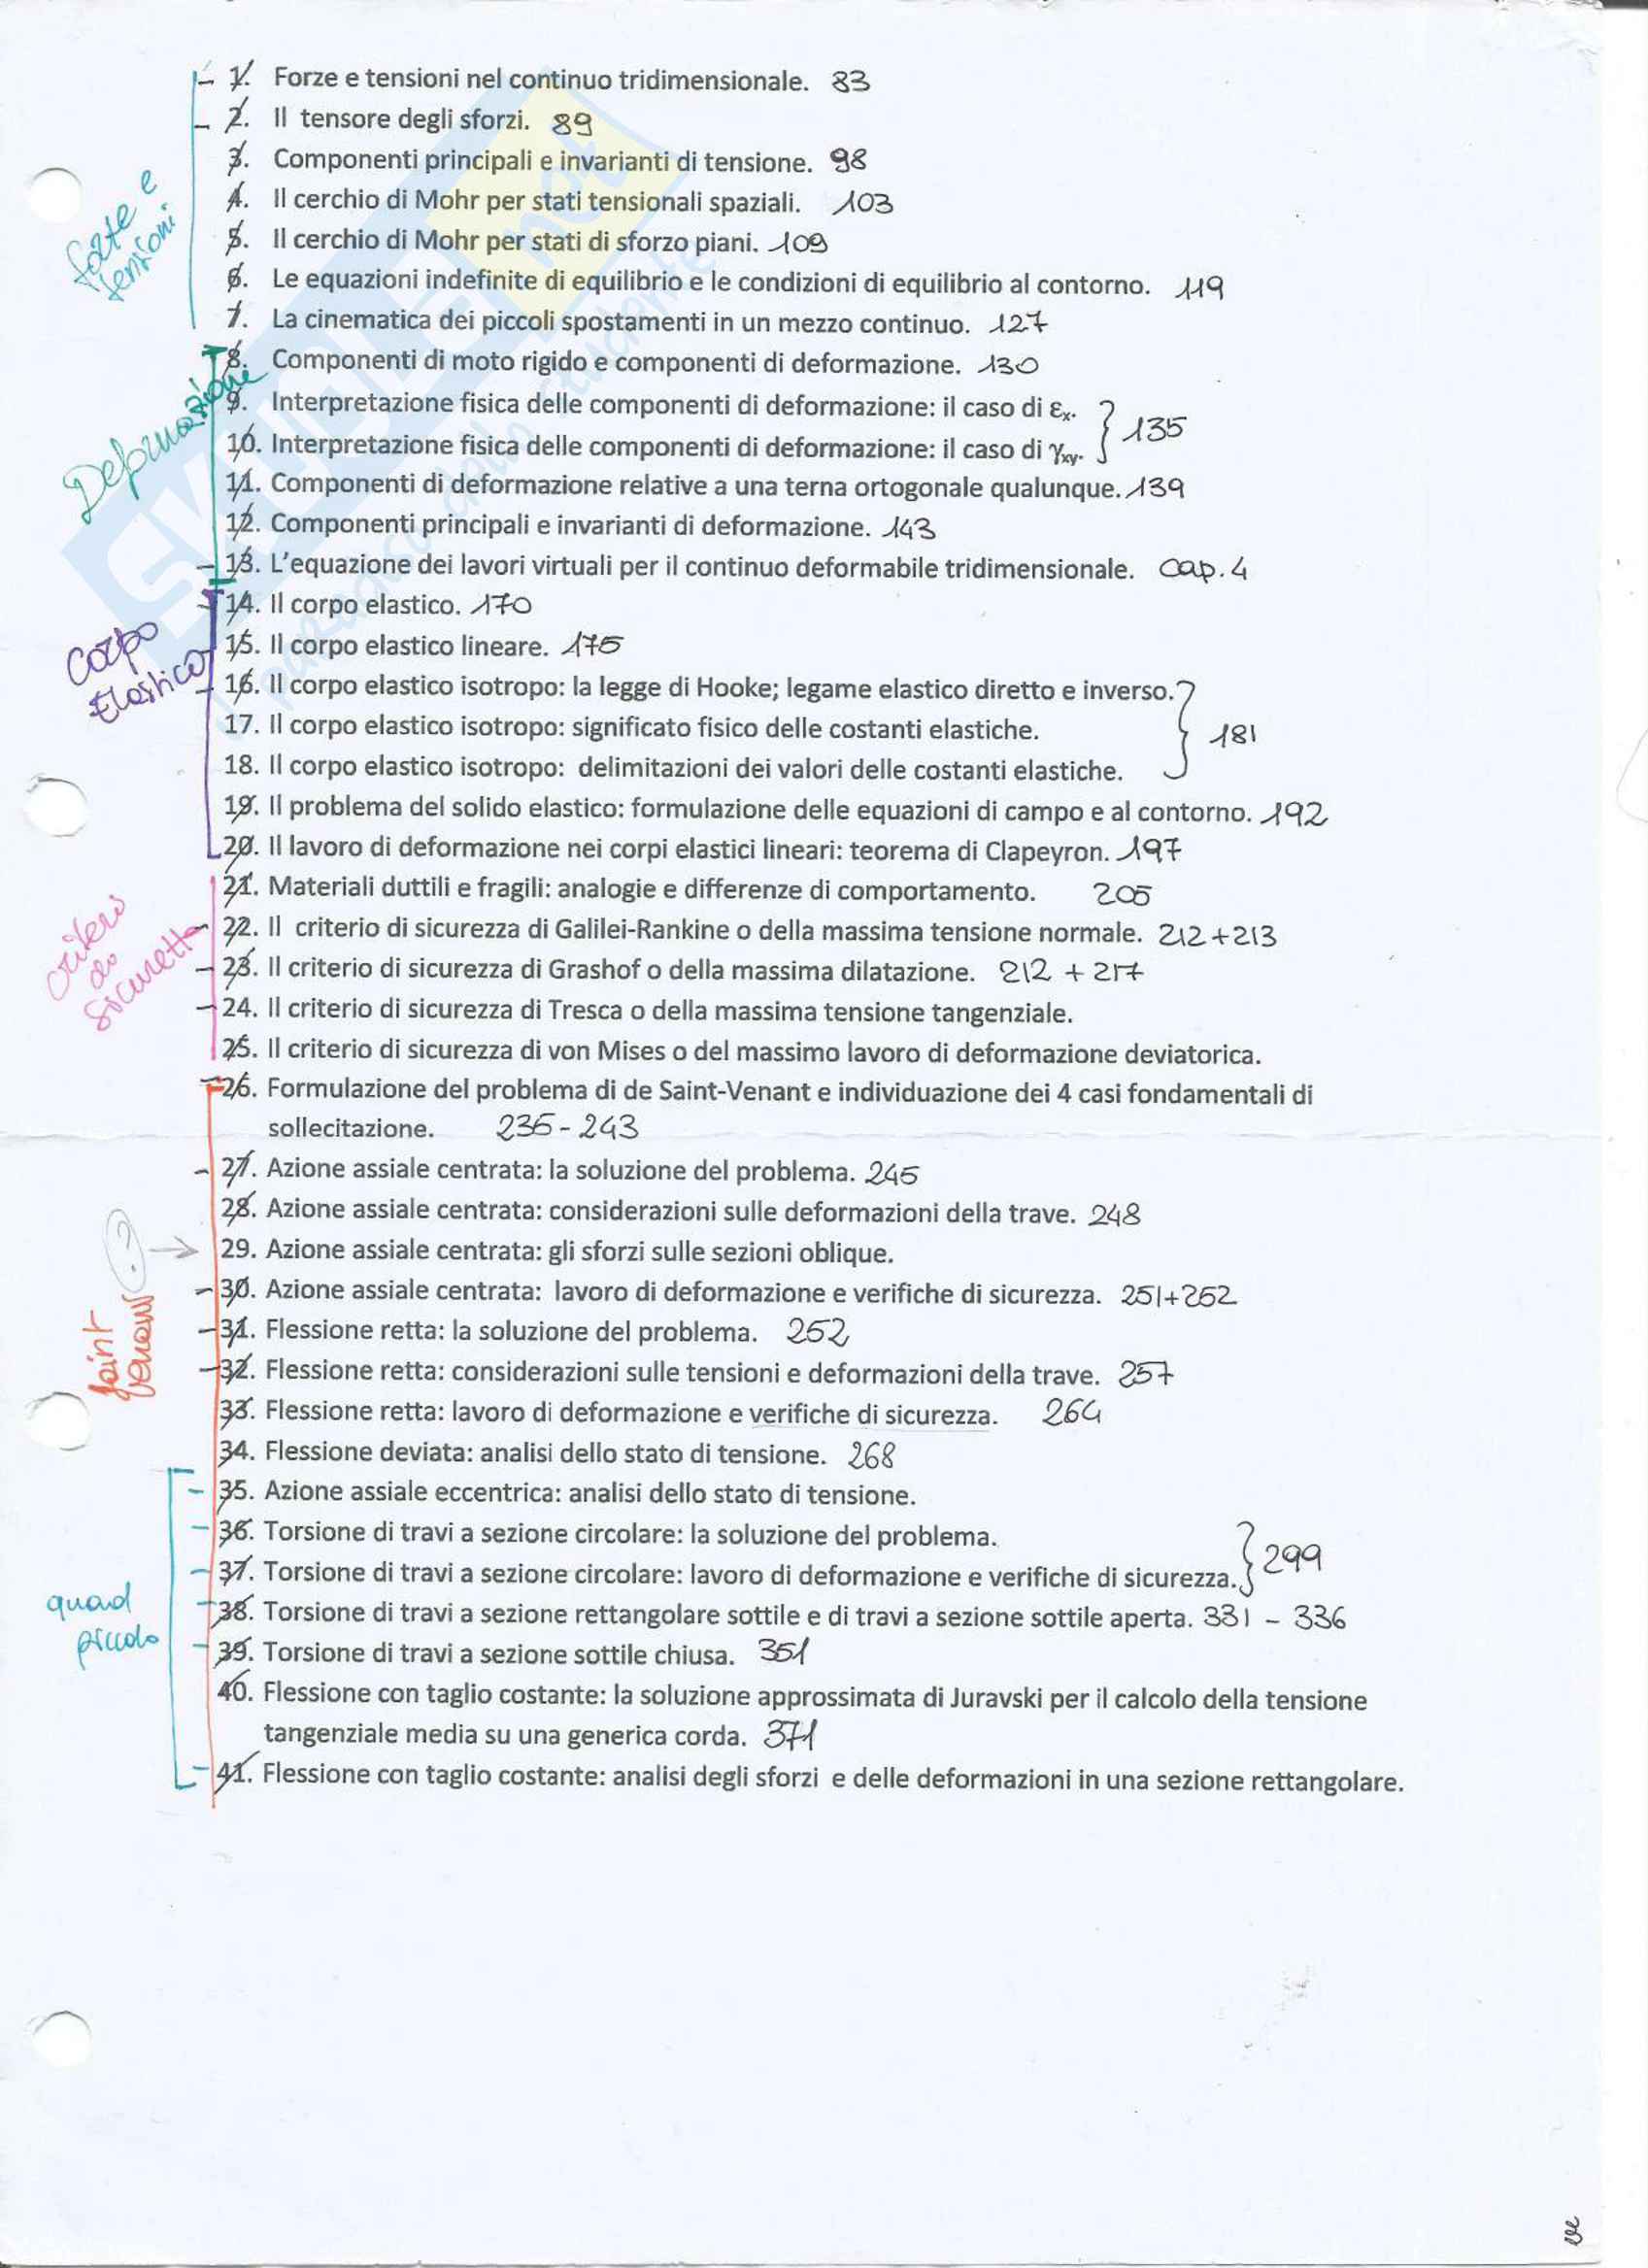 1. Forze e tensioni nel continuo tridimensionale. 83
2. Il tensore degli sforzi. 89
3. Componenti principali e invarianti di tensione. 98
4. Il cerchio di Mohr per stati tensionali spaziali. 103
5. Il cerchio di Mohr per stati di sforzo piani. 109
6. Le equazioni indefinite di equilibrio e le condizioni di equilibrio al contorno. 119
7. La cinematica dei piccoli spostamenti in un mezzo continuo. 127
forze e
tensioni
8. Componenti di moto rigido e componenti di deformazione. 130
9. Interpretazione fisica delle componenti di deformazione: il caso di εx.
10. Interpretazione fisica delle componenti di deformazione: il caso di γxy. 135
11. Componenti di deformazione relative a una terna ortogonale qualunque. 139
12. Componenti principali e invarianti di deformazione. 143
13. L'equazione dei lavori virtuali per il continuo deformabile tridimensionale. cap. 4
Deformazione
14. Il corpo elastico. 170
15. Il corpo elastico lineare. 175
16. Il corpo elastico isotropo: la legge di Hooke; legame elastico diretto e inverso.
17. Il corpo elastico isotropo: significato fisico delle costanti elastiche. 181
18. Il corpo elastico isotropo: delimitazioni dei valori delle costanti elastiche.
19. Il problema del solido elastico: formulazione delle equazioni di campo e al contorno. 192
20. Il lavoro di deformazione nei corpi elastici lineari: teorema di Clapeyron. 197
Corpo
Elastico
21. Materiali duttili e fragili: analogie e differenze di comportamento. 205
22. Il criterio di sicurezza di Galilei-Rankine o della massima tensione normale. 212+213
23. Il criterio di sicurezza di Grashof o della massima dilatazione. 212 + 217
24. Il criterio di sicurezza di Tresca o della massima tensione tangenziale.
25. Il criterio di sicurezza di von Mises o del massimo lavoro di deformazione deviatorica.
criterio
di
sicurezza
26. Formulazione del problema di de Saint-Venant e individuazione dei 4 casi fondamentali di
sollecitazione. 236-243
27. Azione assiale centrata: la soluzione del problema. 245
28. Azione assiale centrata: considerazioni sulle deformazioni della trave. 248
? → 29. Azione assiale centrata: gli sforzi sulle sezioni oblique.
30. Azione assiale centrata: lavoro di deformazione e verifiche di sicurezza. 251+252
31. Flessione retta: la soluzione del problema. 252
32. Flessione retta: considerazioni sulle tensioni e deformazioni della trave. 257
33. Flessione retta: lavoro di deformazione e verifiche di sicurezza. 264
34. Flessione deviata: analisi dello stato di tensione. 268
saint
venant
35. Azione assiale eccentrica: analisi dello stato di tensione.
36. Torsione di travi a sezione circolare: la soluzione del problema.
37. Torsione di travi a sezione circolare: lavoro di deformazione e verifiche di sicurezza. 299
38. Torsione di travi a sezione rettangolare sottile e di travi a sezione sottile aperta. 331 - 336
39. Torsione di travi a sezione sottile chiusa. 351
40. Flessione con taglio costante: la soluzione approssimata di Juravski per il calcolo della tensione
tangenziale media su una generica corda. 371
41. Flessione con taglio costante: analisi degli sforzi e delle deformazioni in una sezione rettangolare.
quad
piccolo